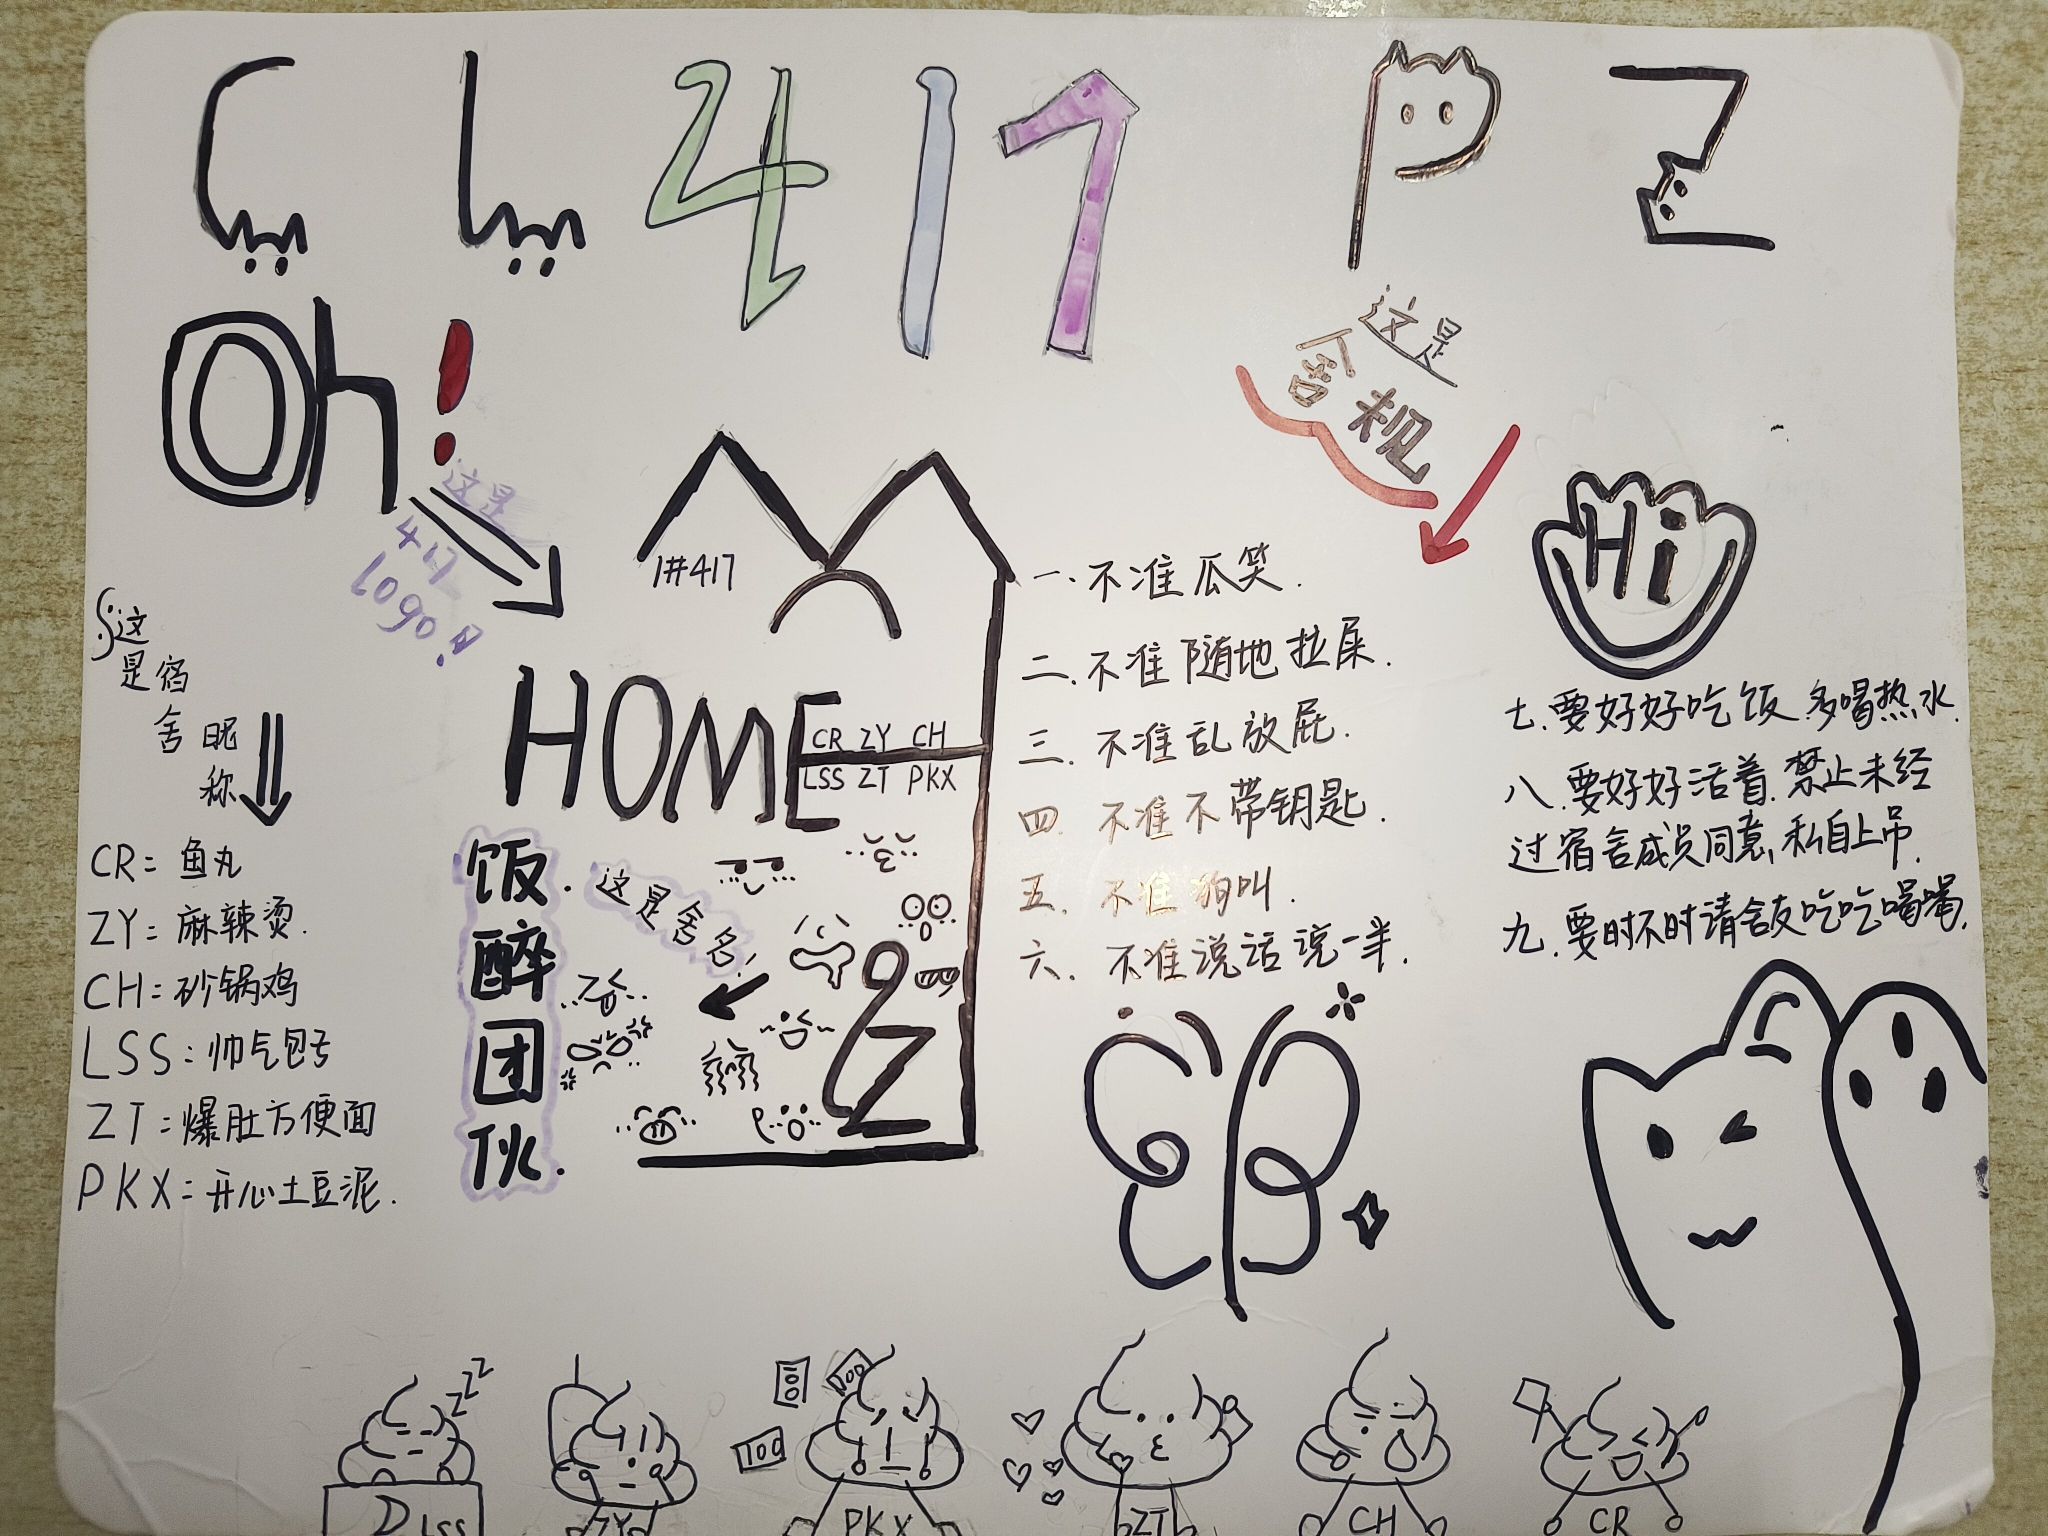 C L 417 P Z
Oh!
这是
417
logo!
这是
舍规
Hi
1#417
HOME
CR ZY CH
LSS ZT PKX
这
是宿
舍昵
称
CR=鱼丸
ZY=麻辣烫.
CH=砂锅鸡
LSS=帅气包子
ZT=爆肚方便面
PKX=开心土豆泥.
饭.
醉
团
伙.
这是舍名!
一.不准瓜笑.
二.不准随地拉屎.
三.不准乱放屁.
四.不准不带钥匙.
五.不准狗叫.
六.不准说话说一半.
七.要好好吃饭.多喝热水.
八.要好好活着.禁止未经
过宿舍成员同意,私自上吊.
九.要时不时请舍友吃吃喝喝.
zzz
100
100
100
LSS
ZY
PKX
ZT
CH
CR